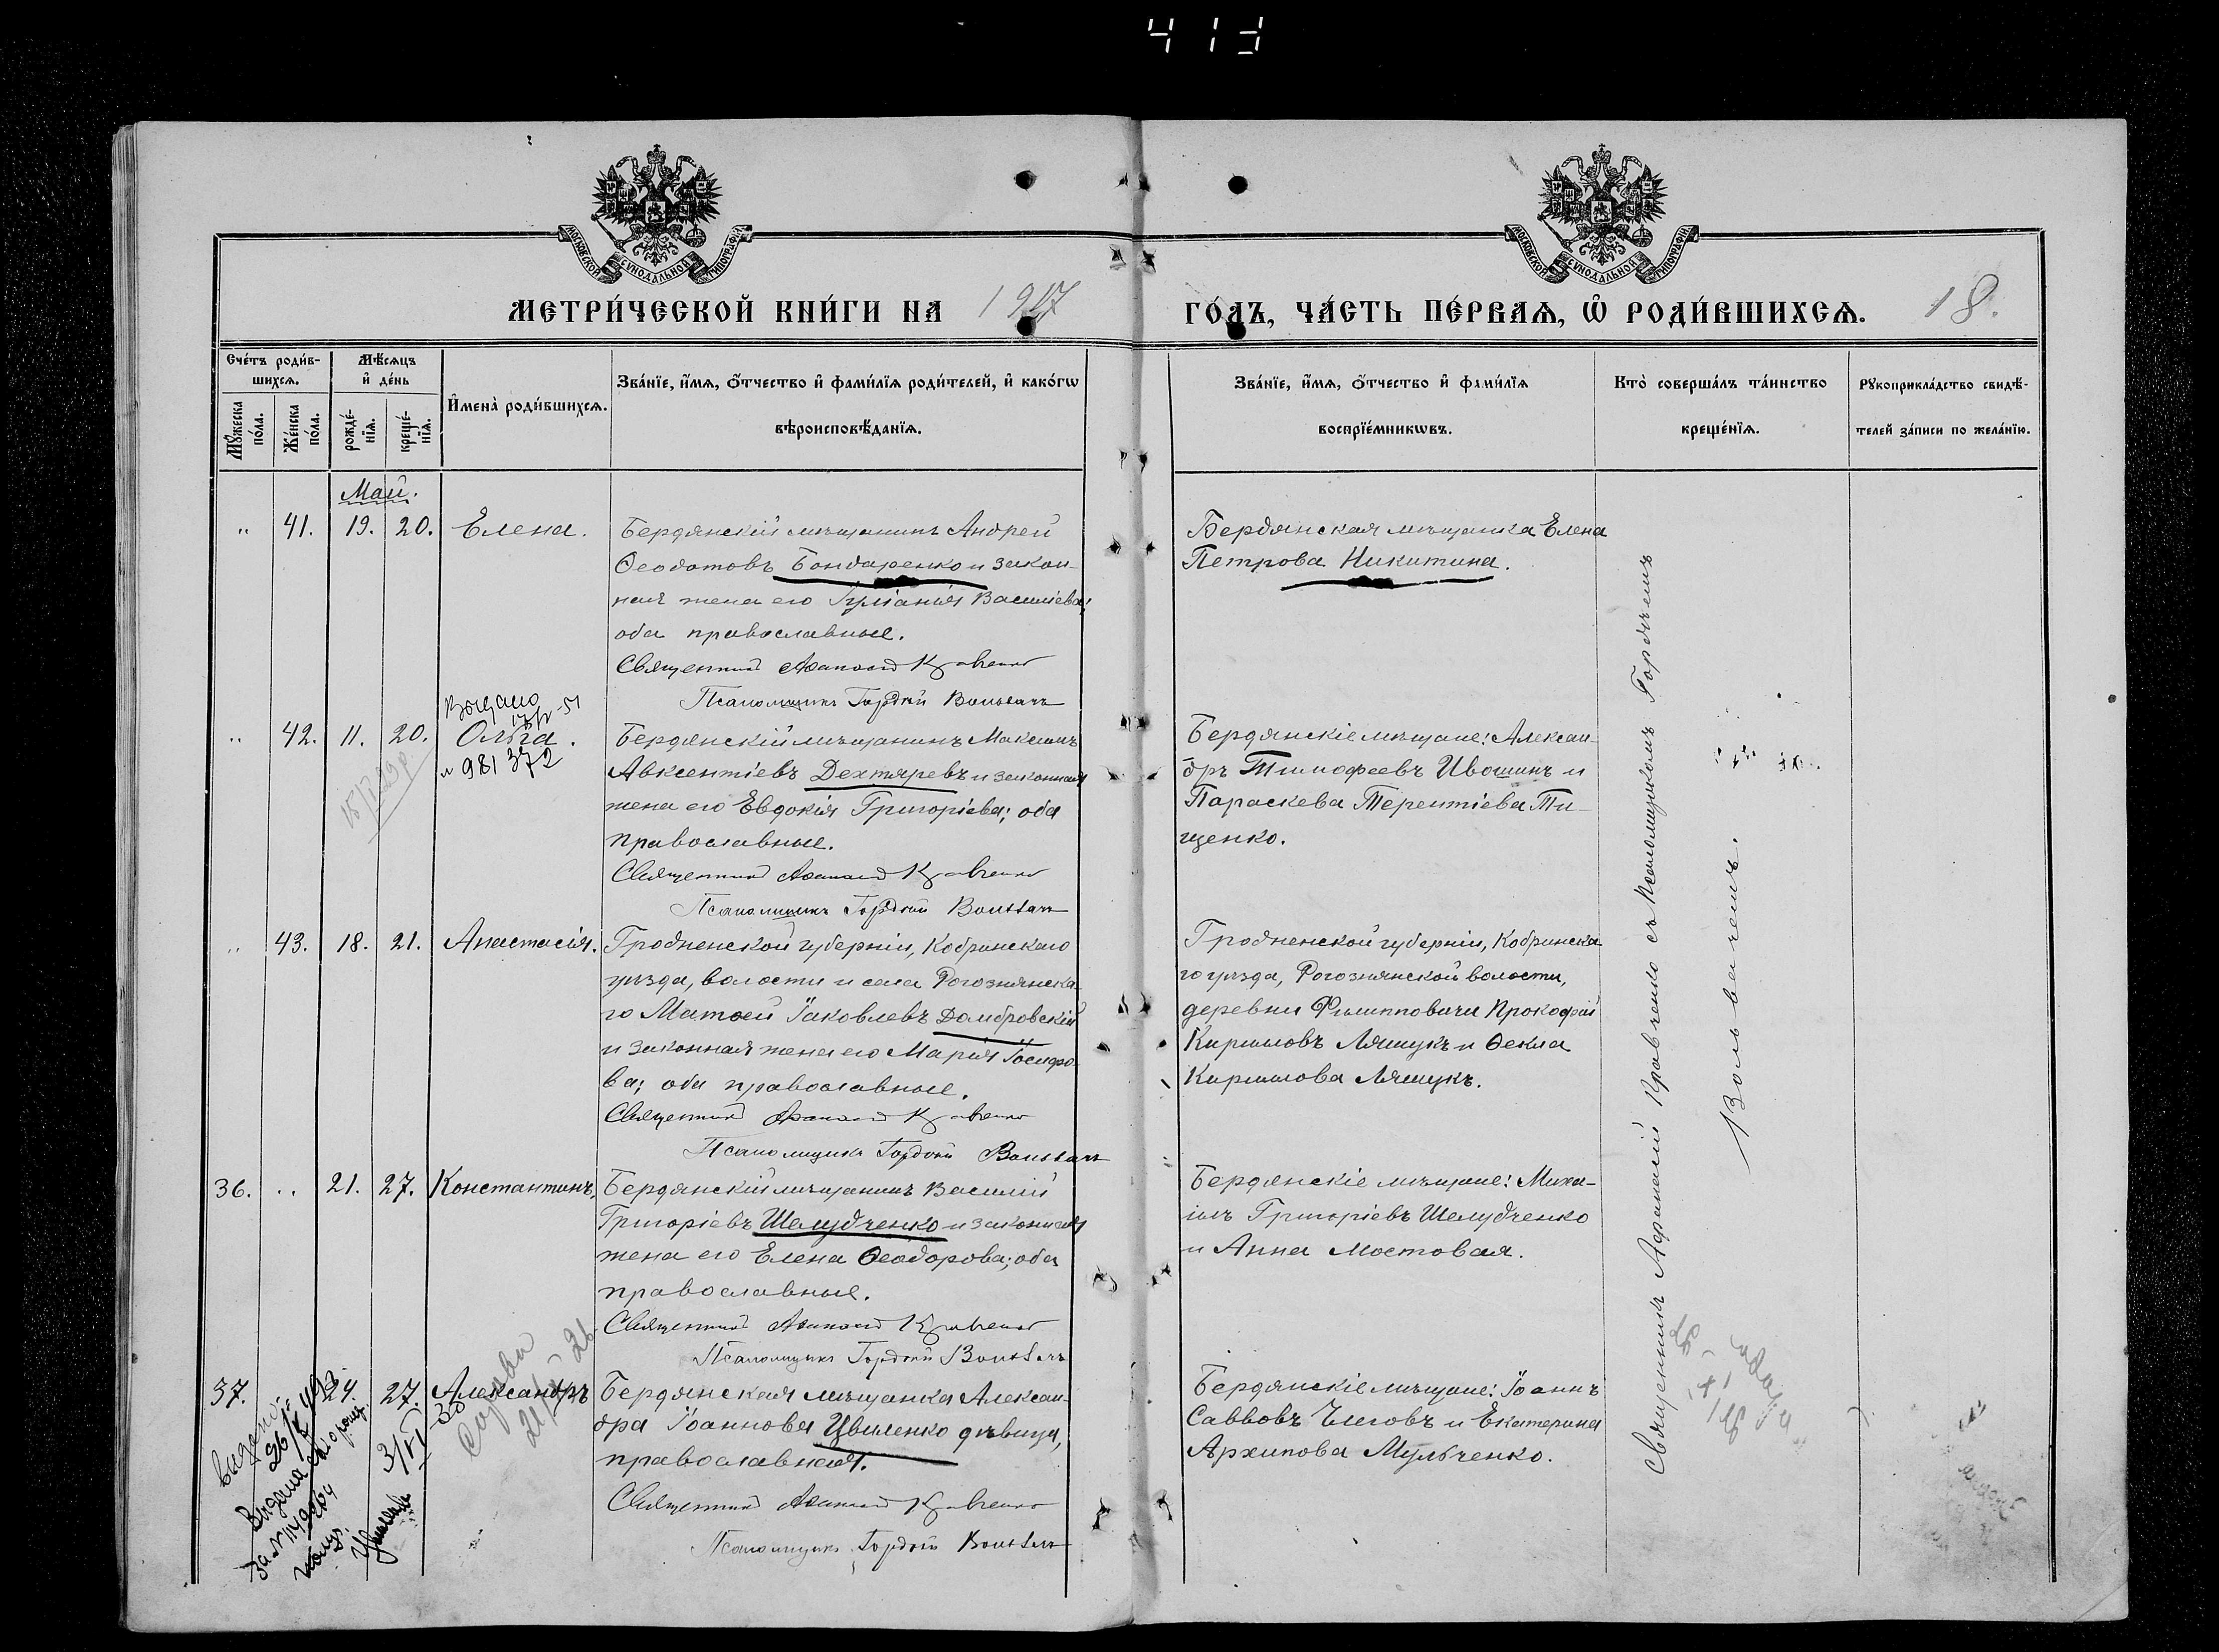 413
МОСКОВСКОЙ СѴНОДАЛЬНОЙ ТИПОГРАФІИ
МОСКОВСКОЙ СѴНОДАЛЬНОЙ ТИПОГРАФІИ
МЕТРИ́ЧЕСКОЙ КНИ́ГИ НА 1917
ГО́ДЪ, ЧА́СТЬ ПЕ́РВАѦ, Ѽ РОДИ́ВШИХСѦ. 18.
Сче́тъ роди́в-
шихсѧ.
Мꙋ́жеска по́ла.
Же́нска по́ла.
Мѣ́сѧцъ
и҆ де́нь
рожде́-
нїѧ.
креще́-
нїѧ.
И҆мена̀ роди́вшихсѧ.
Зва́нїе, и҆́мѧ, ѻ҆́тчество и҆ фами́лїѧ роди́телей, и҆ како́гѡ
вѣроисповѣ́данїѧ.
Зва́нїе, и҆́мѧ, ѻ҆́тчество и҆ фами́лїѧ
воспрїе́мникѡвъ.
Кто̀ соверша́лъ та́инство
креще́нїѧ.
Рꙋкоприкла́дство свидѣ́-
телей за́писи по жела́нїю.
Май.
" 41. 19. 20. Елена.
Бердянскій мѣщанинъ Андрей
Ѳеодотовъ Бондаренко и закон-
ная жена его Іуліанія Василіева;
оба православные.
Священникъ Аѳанасій Кравченко
Псаломщикъ Гордѣй Вольвачъ
Бердянская мѣщанка Елена
Петрова Никитина.
Выдано
" 42. 11. 20. Ольга.
№ 981372
Бердянскій мѣщанинъ Максимъ
Авксентіевъ Дехтяревъ и законная
жена его Евдокія Григоріева; оба
православные.
Священникъ Аѳанасій Кравченко
Псаломщикъ Гордѣй Вольвачъ
Бердянскіе мѣщане: Алексан-
дръ Тимофеевъ Ивошинъ и
Параскева Терентіева Ти-
щенко.
" 43. 18. 21. Анастасія.
Гродненской губерніи, Кобринскаго
уѣзда, волости и села Рогознянска-
го Матѳей Іаковлевъ Домбровскій
и законная жена его Марія Іосифо-
ва; оба православные.
Священникъ Аѳанасій Кравченко
Псаломщикъ Гордѣй Вольвачъ
Гродненской губерніи, Кобринска-
го уѣзда, Рогознянской волости,
деревни Филипповичи Прокофій
Кирилловъ Лящукъ и Ѳекла
Кириллова Лящукъ.
36. " 21. 27. Константинъ.
Бердянскій мѣщанинъ Василій
Григоріевъ Шелудченко и законная
жена его Елена Ѳеодорова; оба
православные.
Священникъ Аѳанасій Кравченко
Псаломщикъ Гордѣй Вольвачъ
Бердянскіе мѣщане: Миха-
илъ Григоріевъ Шелудченко
и Анна Мостовая.
37. 24. 27. Александръ
Бердянская мѣщанка Алексан-
дра Іоаннова Цвиленко дѣвица,
православная.
Священникъ Аѳанасій Кравченко
Псаломщикъ Гордѣй Вольвачъ
Бердянскіе мѣщане: Іоаннъ
Савовъ Чеговъ и Екатерина
Архипова Мульченко.
Священникъ Аѳанасій Кравченко съ псаломщикомъ Гордѣемъ
Вольвачемъ.